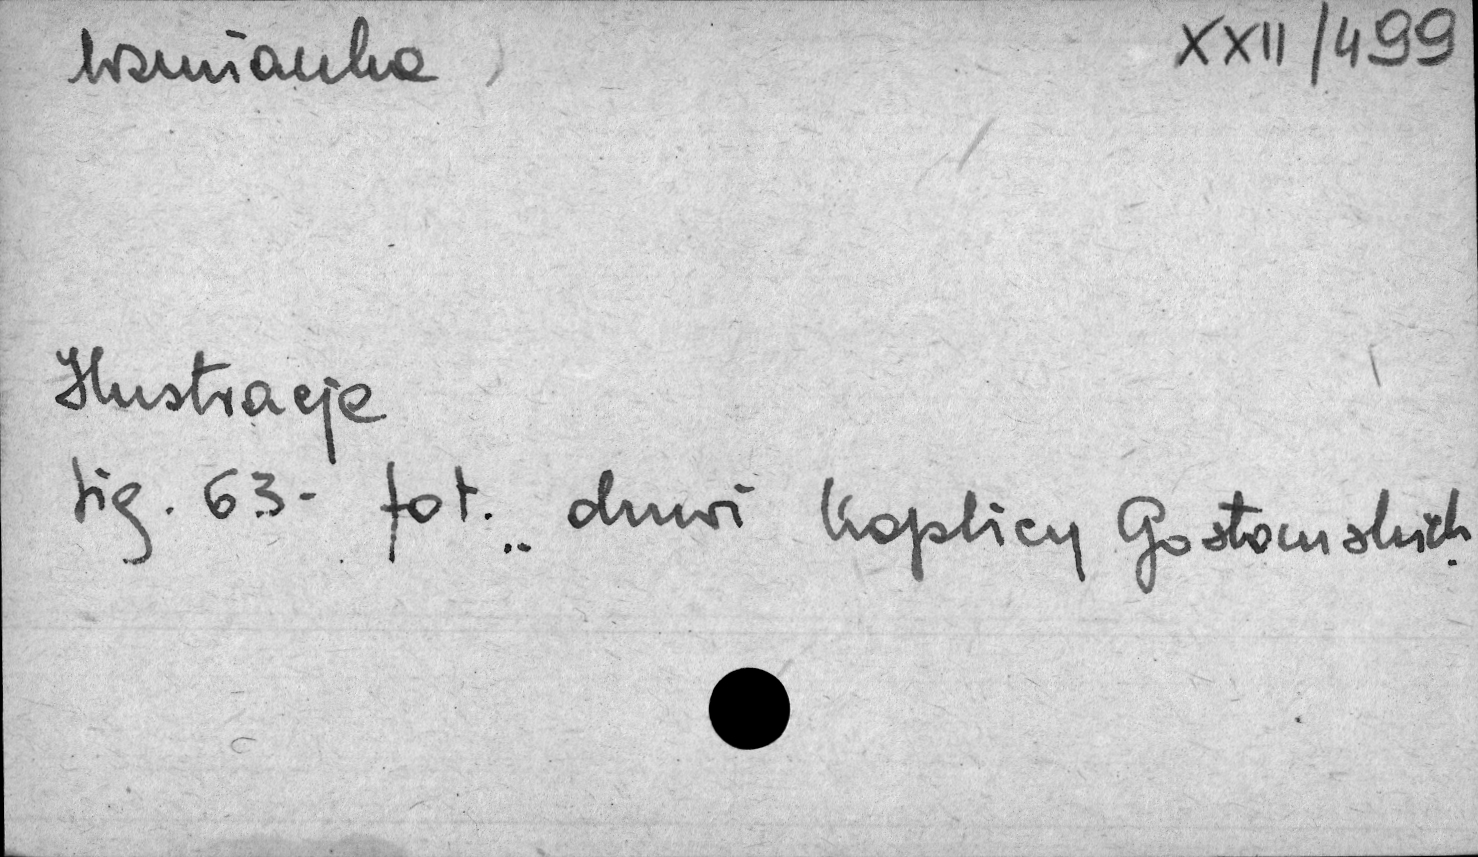 wzmianka
XXII/499
Ilustracje
fig. 63- fot. drzwi Kaplicy Gostomskich.